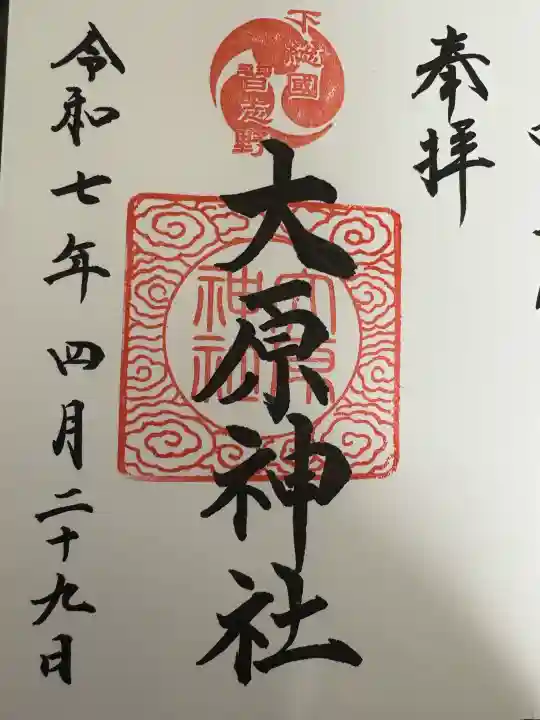 奉拝
下総國
習志野
大原神社
大原
神社
令和七年四月二十九日